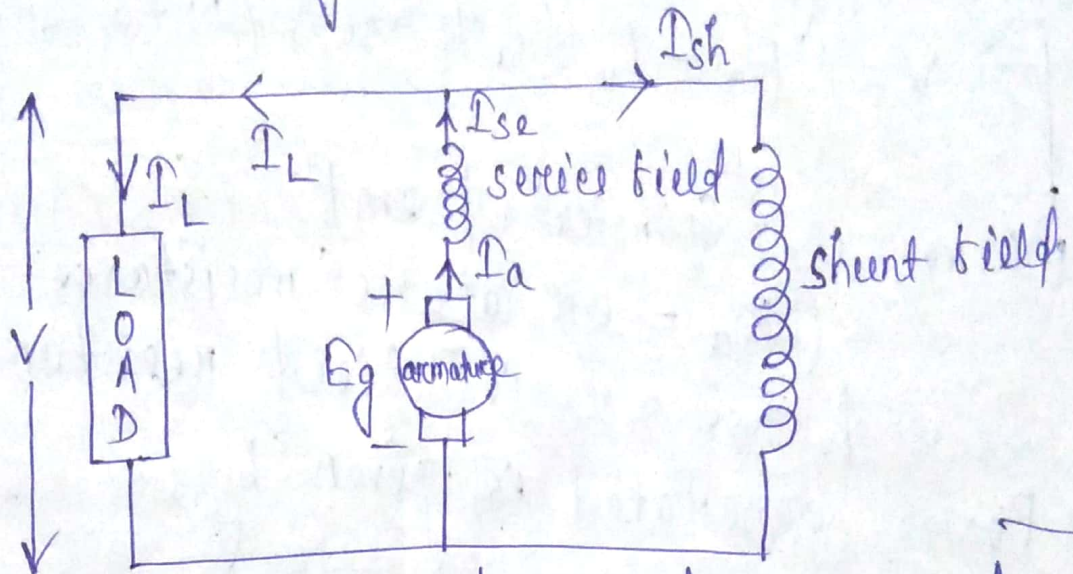 Ish
Ise
IL
series field
IL
Shunt field
Ia
+
LOAD
V
Eg
armature
-